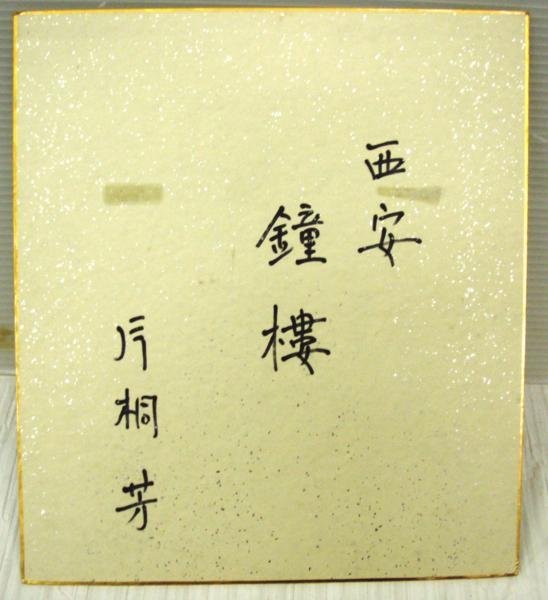 西安
鐘樓
片桐芳